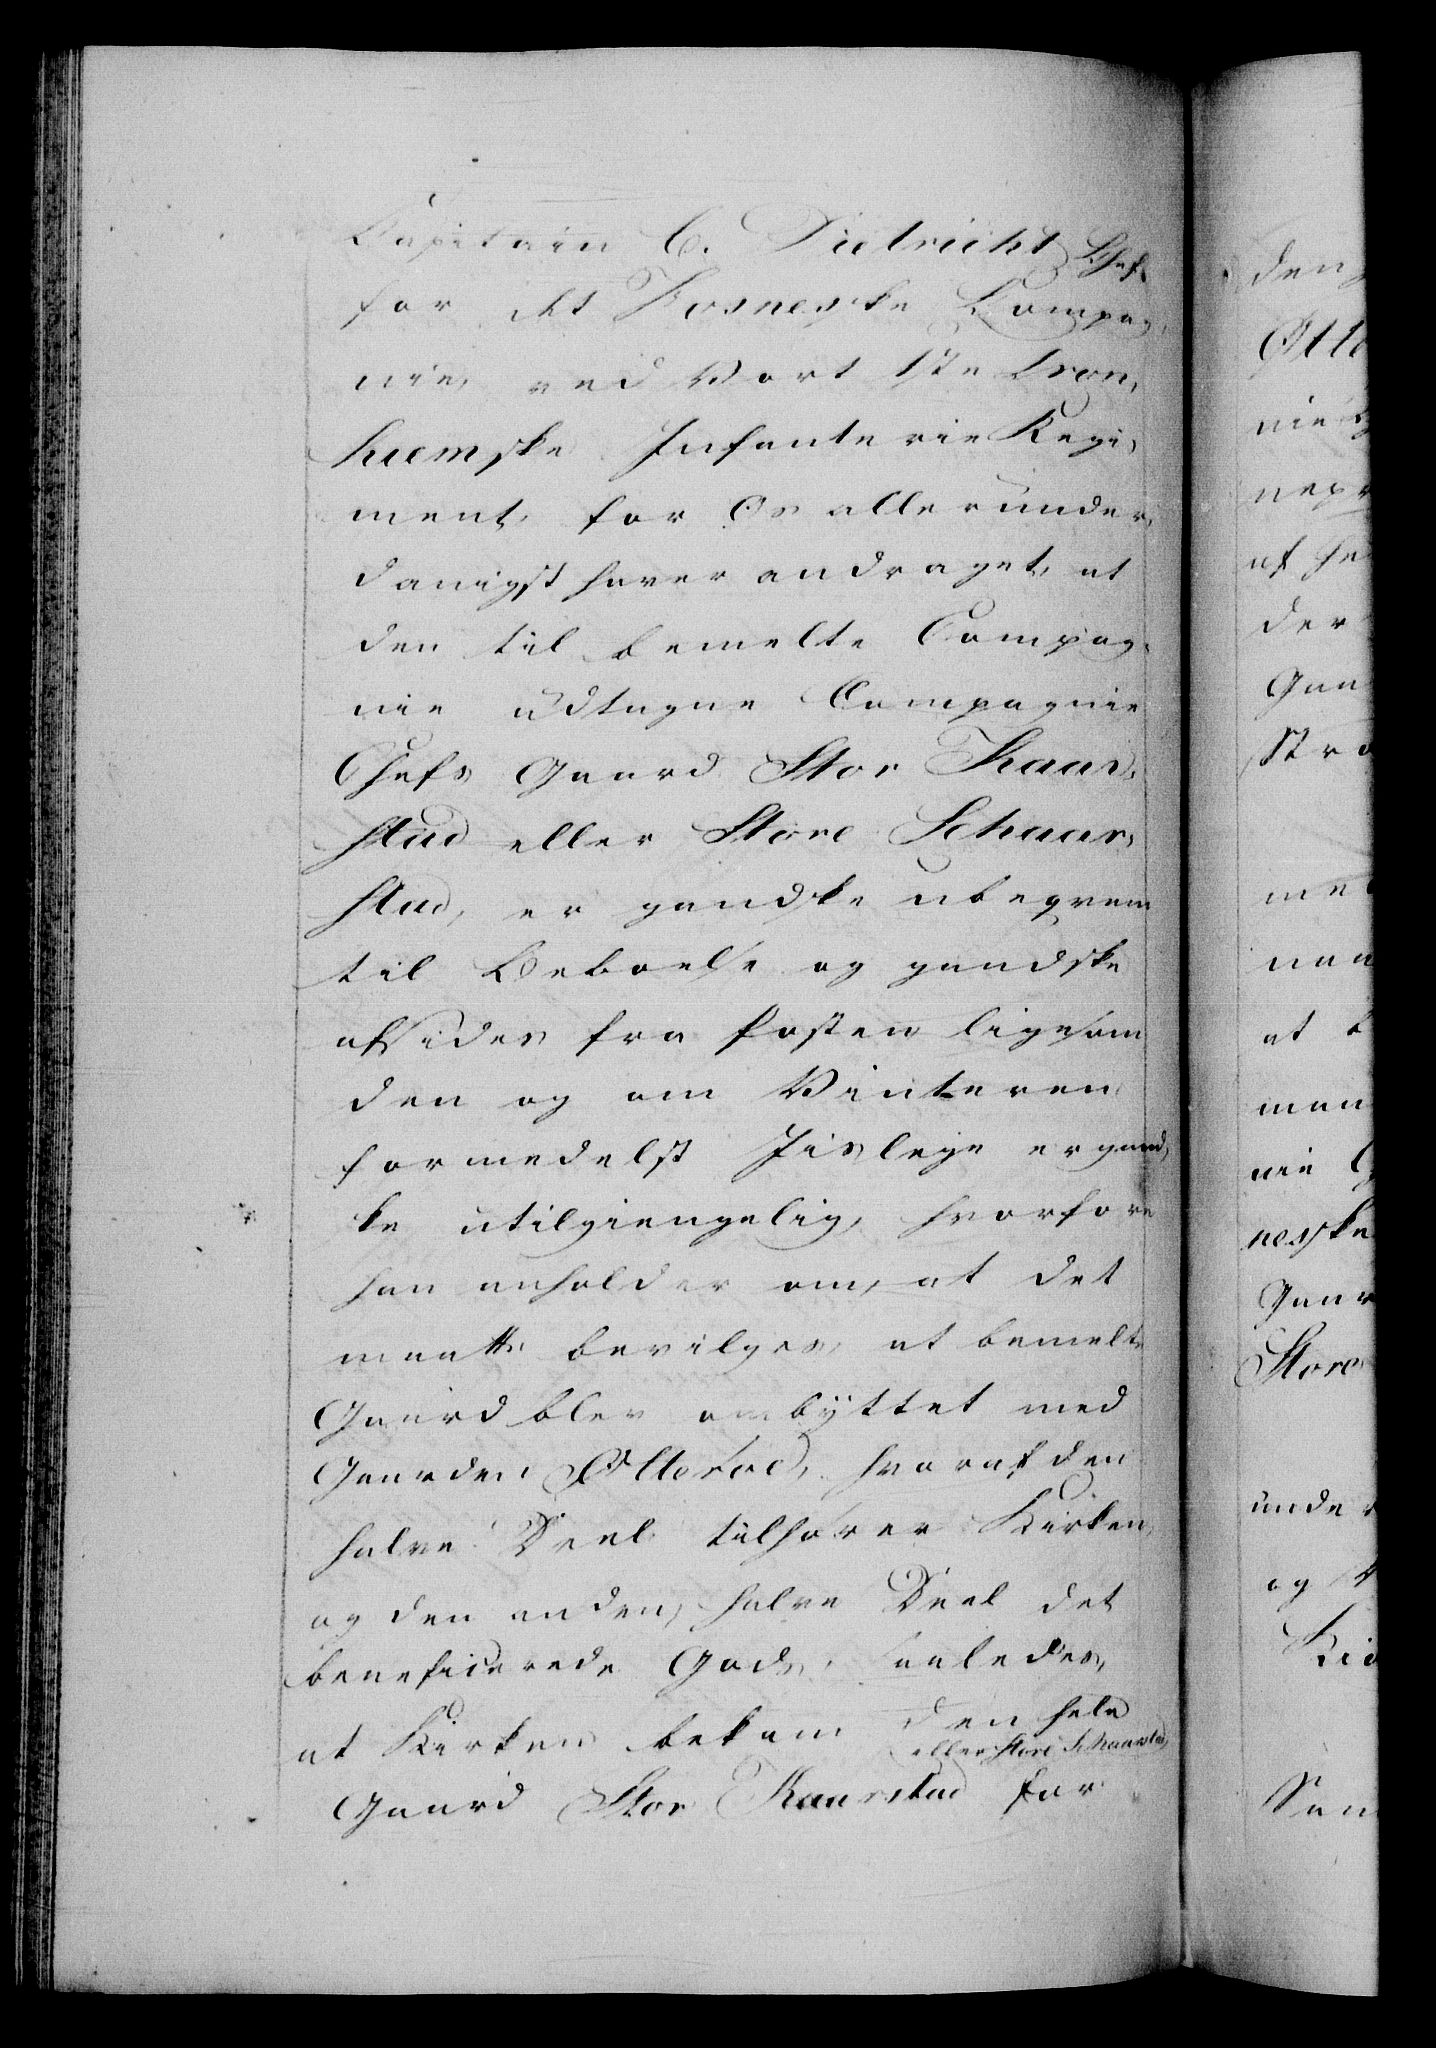 Capitain C. Dietricht Chef
for det Fosneske Compag,
nie, ved Vort 1ste Tron,
hiemske Infanterie Regi,
ment, for Os allerunder,
danigst haver andraget, at
den til bemelte Compag,
nie udtagne Compagnie
Chefs Gaard Stor Kaar,
stad eller Store Schaar,
stad, er gandske ubeqvem
til Beboelse og gandske
afsides fra Posten ligesom
den og om Vinteren
formedelst Iislege er gand,
ke utilgiengelig, hvorfore
han anholder om, at det
maatte bevilges, at bemelte
Gaard blev ombyttet med
Gaarden Øttersøe, hvoraf den
halve Deel tilhører Kirken,
og den anden halve Deel det
beneficerede Gods, saaledes,
at Kirken bekom den hele
eller Store Schaarstad,
Gaard Stor Kaarstad for
den
nie
af
der
Gaa
Stra
at
man
nie
neske
Gaar
Store
under
og